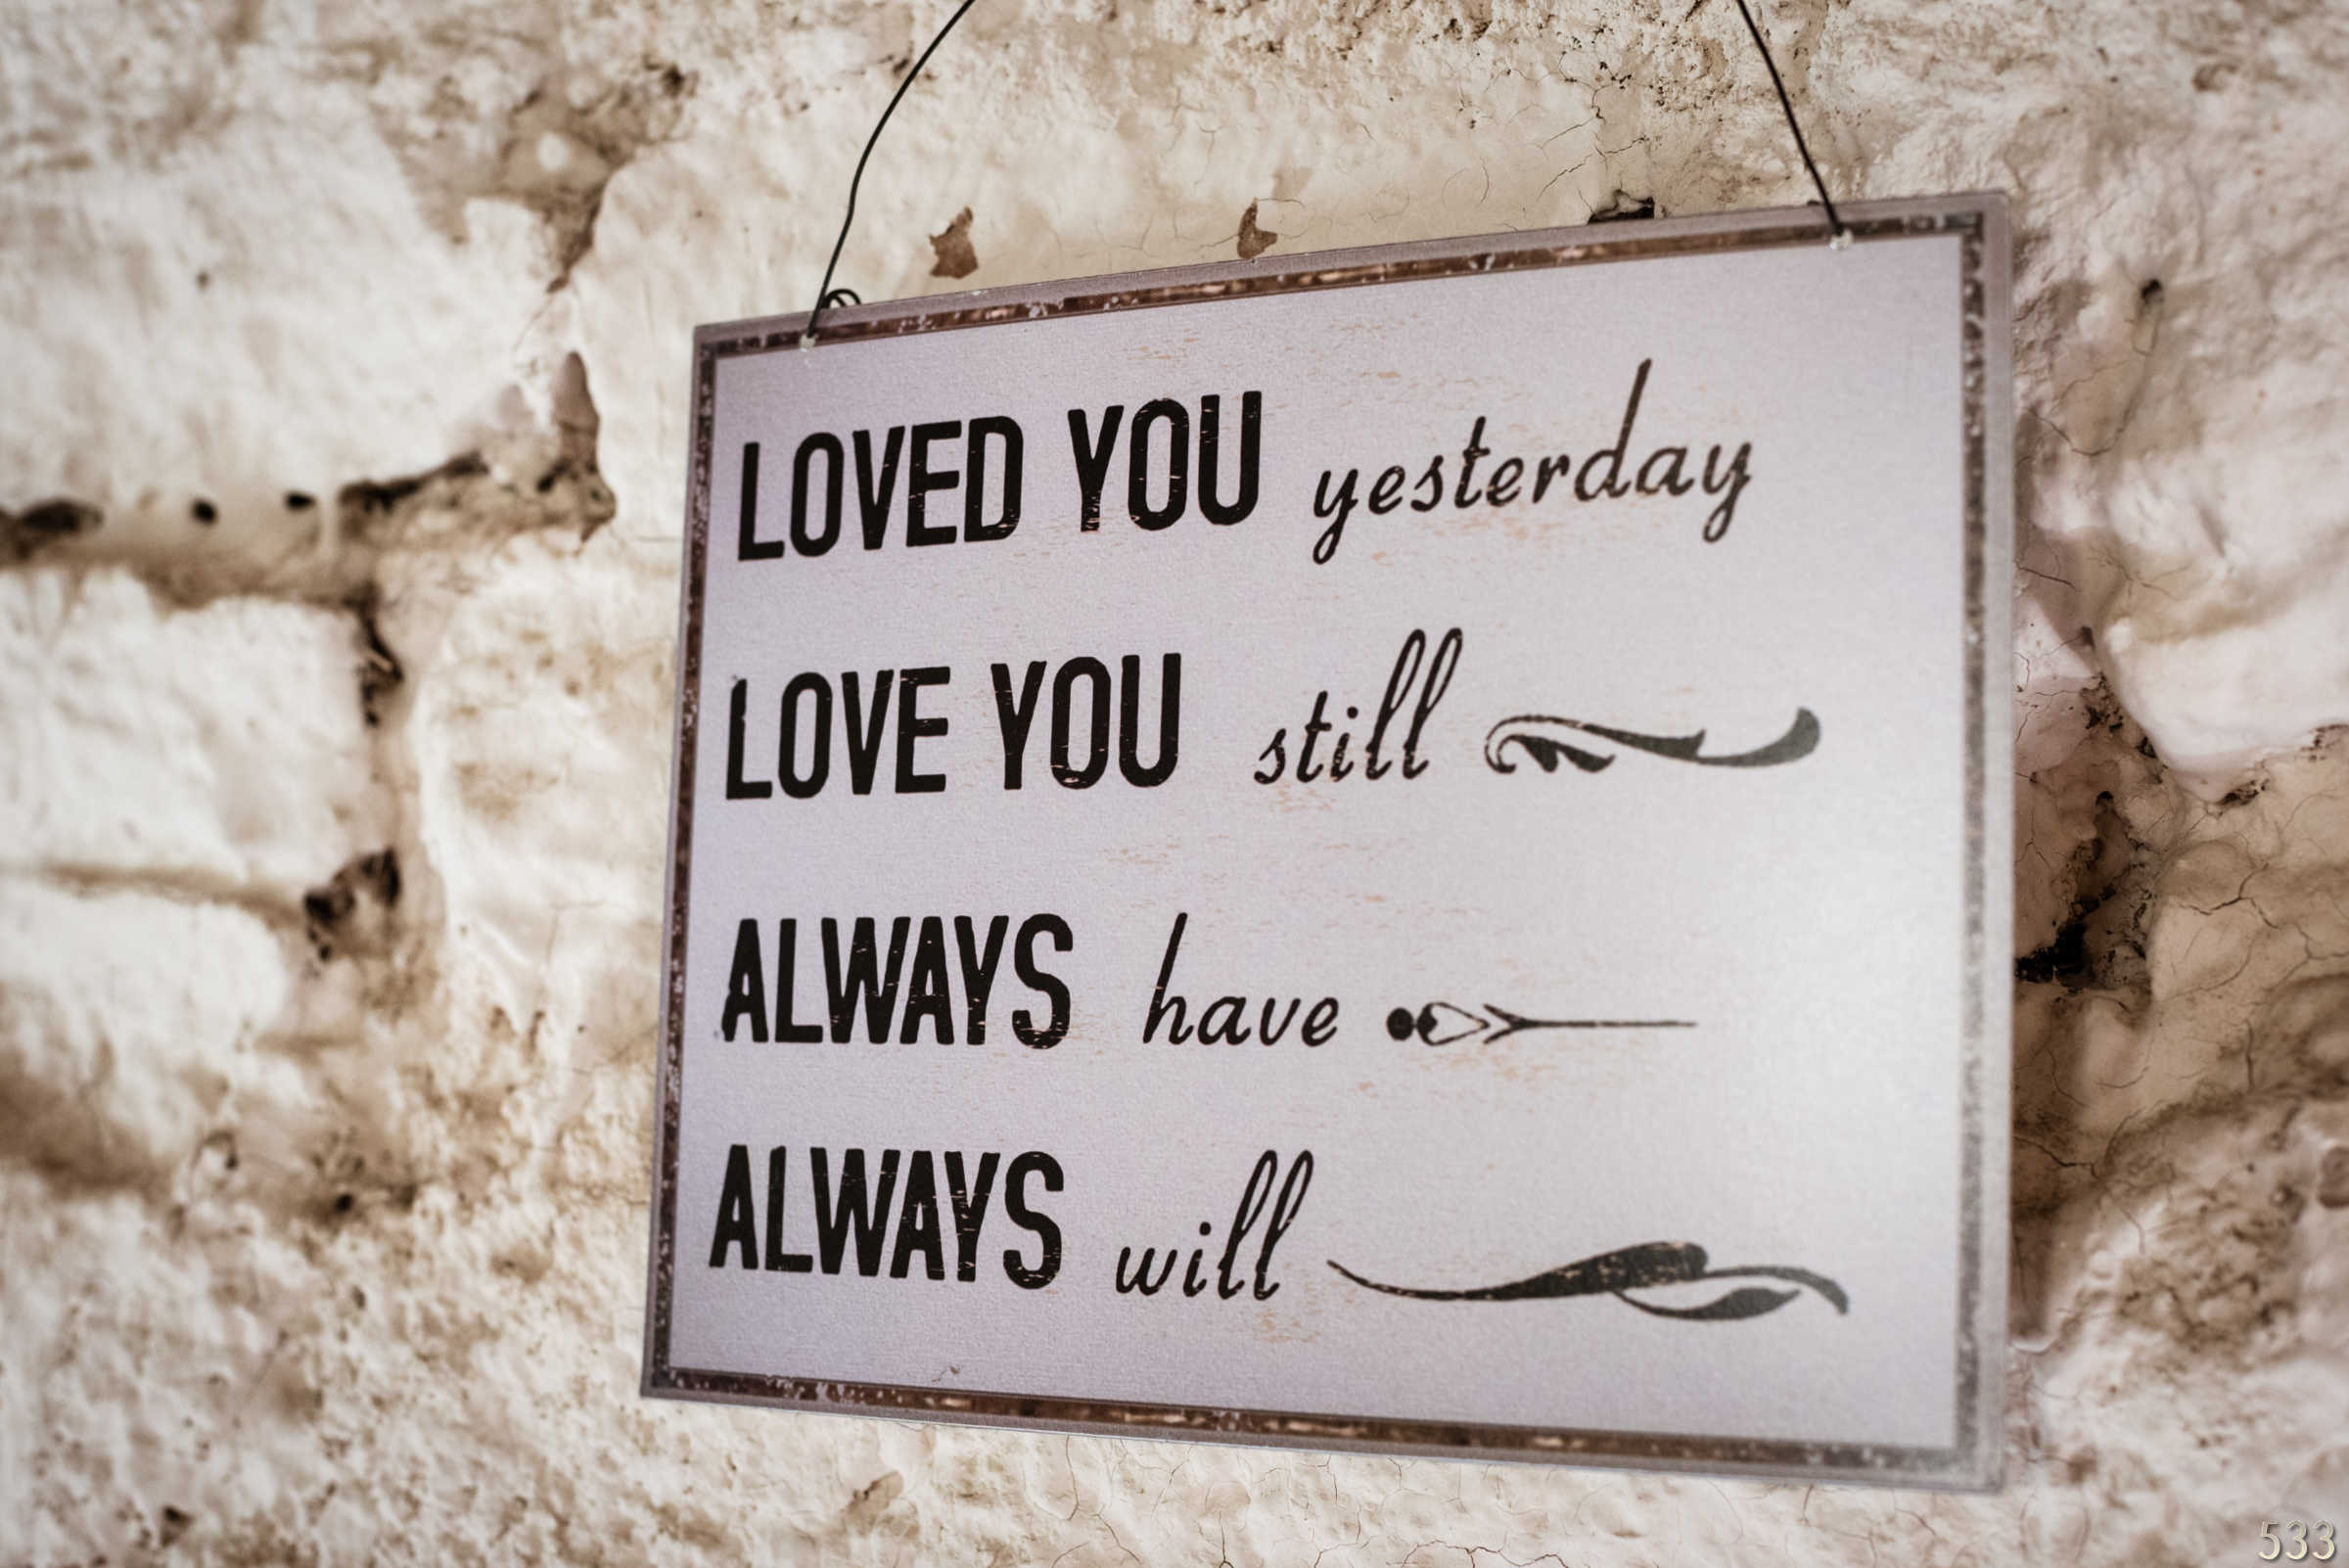 LOVED YOU yesterday
LOVE YOU still
ALWAYS have
ALWAYS will
533